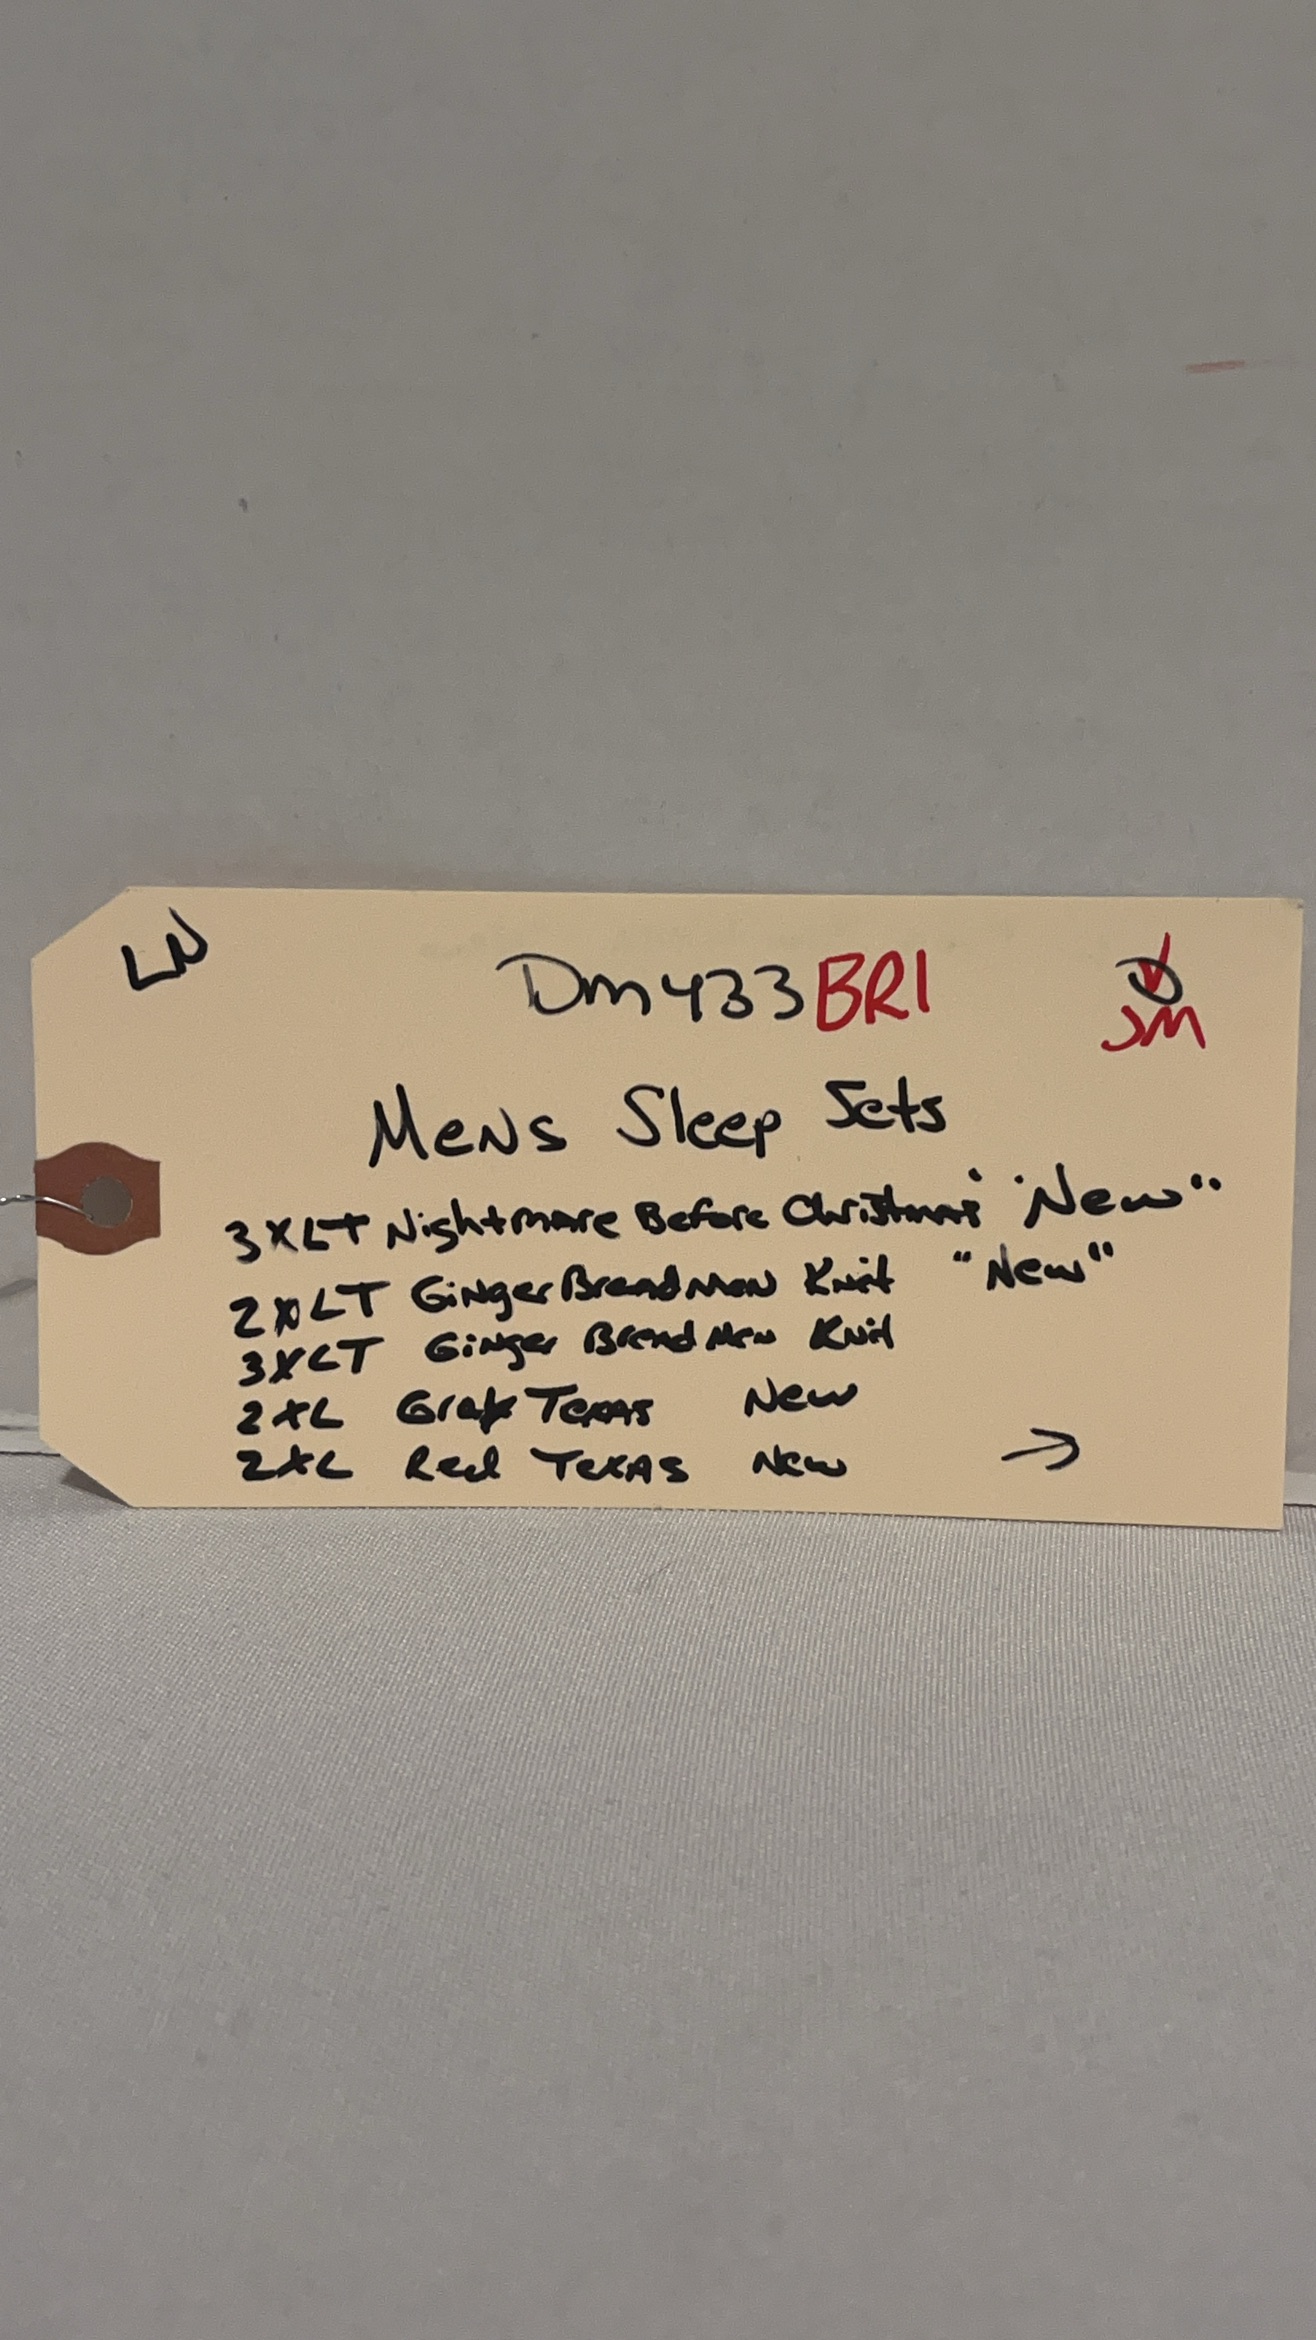 LN
Dm433BR1
JM
Mens Sleep Sets
3XLT Nightmare Before Christmas "New"
2XLT GingerBreadmen Knit "New"
3XLT Ginger Bread Men Knit
2XL Gray Texas New
2XL Red Texas New →